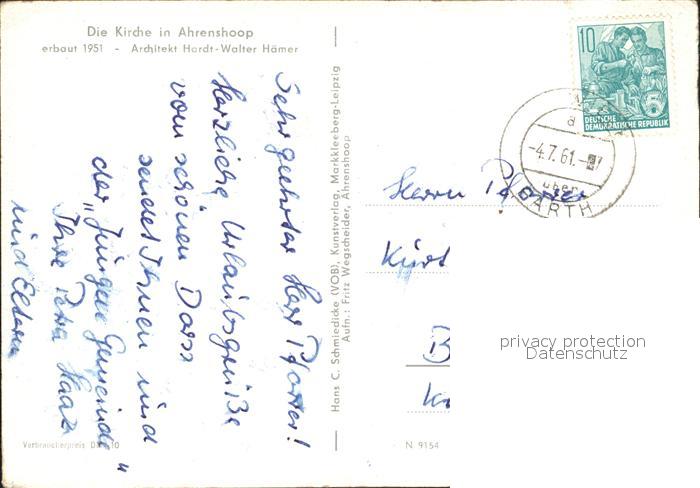 Die Kirche in Ahrenshoop
erbaut 1951 - Architekt Hardt-Walter Hämer
Sehr geehrter Herr Pfarrer!
Herzliche Urlaubsgrüße
vom schönen Darss
sendet Ihnen und
der „Jungen Gemeinde"
Ihre Petra Haak
und Eltern
Verbraucherpreis DM 10
Hans C. Schmiedicke (VOB), Kunstverlag, Markkleeberg-Leipzig
Aufn.: Fritz Wegscheider, Ahrenshoop
N 9154
10
DEUTSCHE
DEMOKRATISCHE REPUBLIK
5
a
-4.7.61.-
über
BARTH
Herrn Pfarrer
Kurt
B
privacy protection
Datenschutz